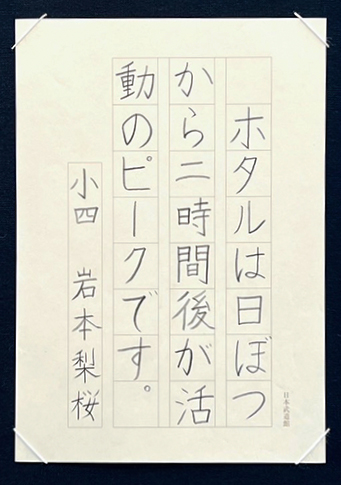 ホタルは日ぼつ
から二時間後が活
動のピークです。
小四 岩本梨桜
日本武道館